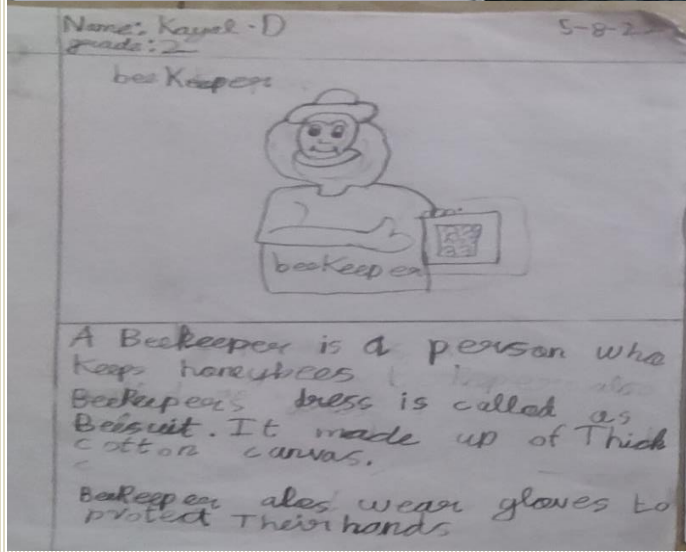 Name: Kayal-D
5-8-2
grade: 2
beekeeper
beekeeper
A Beekeeper is a person who
keeps honeybees
Beekeeper's dress is called as
Beesuit. It made up of Thick
cotton canvas.
Beekeeper ales wear gloves to
protect Their hands